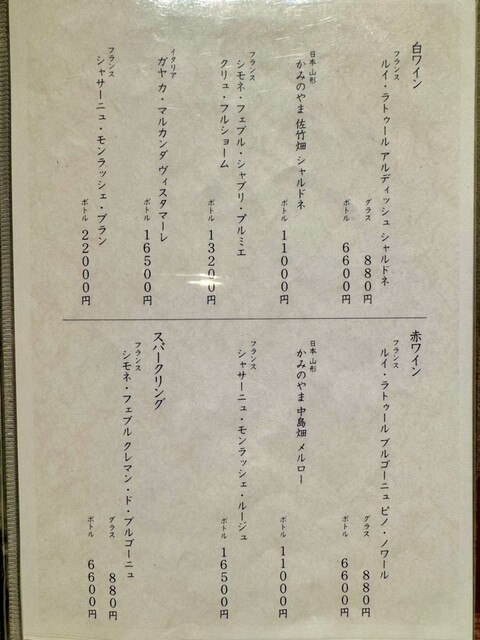 白ワイン
フランス
ルイ・ラトゥール アルディッシュ シャルドネ
グラス 880円
ボトル 6600円
日本 山形
かみのやま 佐竹畑 シャルドネ
ボトル 11000円
フランス
シモネ・フェブル・シャブリ・プルミエ
クリュ・フルショーム
ボトル 13200円
イタリア
ガヤ カ・マルカンダ ヴィスタマーレ
ボトル 16500円
フランス
シャサーニュ・モンラッシェ・ブラン
ボトル 22000円
赤ワイン
フランス
ルイ・ラトゥール ブルゴーニュ ピノ・ノワール
グラス 880円
ボトル 6600円
日本 山形
かみのやま 中島畑 メルロー
ボトル 11000円
フランス
シャサーニュ・モンラッシェ・ルージュ
ボトル 16500円
スパークリング
フランス
シモネ・フェブル クレマン・ド・ブルゴーニュ
グラス 880円
ボトル 6600円